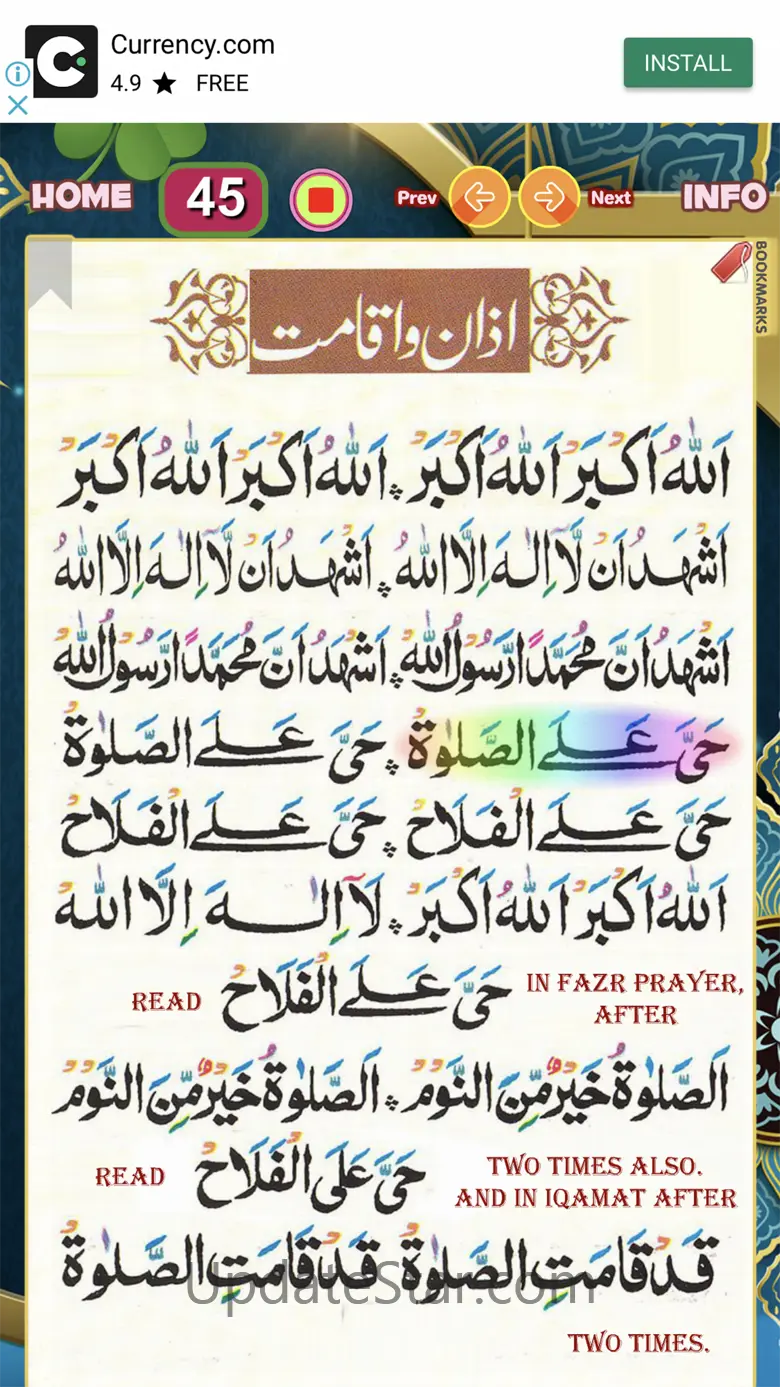 Currency.com
4.9 ★ FREE
INSTALL
HOME
45
Prev
Next
INFO
BOOKMARKS
اذان واقامت
اَللّٰهُ اَكْبَرْ اَللّٰهُ اَكْبَرْ ۞ اَللّٰهُ اَكْبَرْ اَللّٰهُ اَكْبَرْ
اَشْهَدُ اَنْ لَّآ اِلٰهَ اِلَّا اللّٰهُ ۞ اَشْهَدُ اَنْ لَّآ اِلٰهَ اِلَّا اللّٰهُ
اَشْهَدُ اَنَّ مُحَمَّدًا رَّسُوْلُ اللّٰهُ ۞ اَشْهَدُ اَنَّ مُحَمَّدًا رَّسُوْلُ اللّٰهُ
حَیَّ عَلَے الصَّلٰوةْ ۞ حَیَّ عَلَے الصَّلٰوةْ
حَیَّ عَلَے الْفَلَاحْ ۞ حَیَّ عَلَے الْفَلَاحْ
اَللّٰهُ اَكْبَرْ اَللّٰهُ اَكْبَرْ ۞ لَآ اِلٰهَ اِلَّا اللّٰهْ
IN FAZR PRAYER, AFTER حَیَّ عَلَے الْفَلَاحْ READ
اَلصَّلٰوةُ خَيْرٌ مِّنَ النَّوْمْ ۞ اَلصَّلٰوةُ خَيْرٌ مِّنَ النَّوْمْ
TWO TIMES ALSO.
AND IN IQAMAT AFTER حَیَّ عَلَی الْفَلَاحْ READ
قَدْ قَامَتِ الصَّلٰوةْ قَدْ قَامَتِ الصَّلٰوةْ
UpdateStar.com
TWO TIMES.